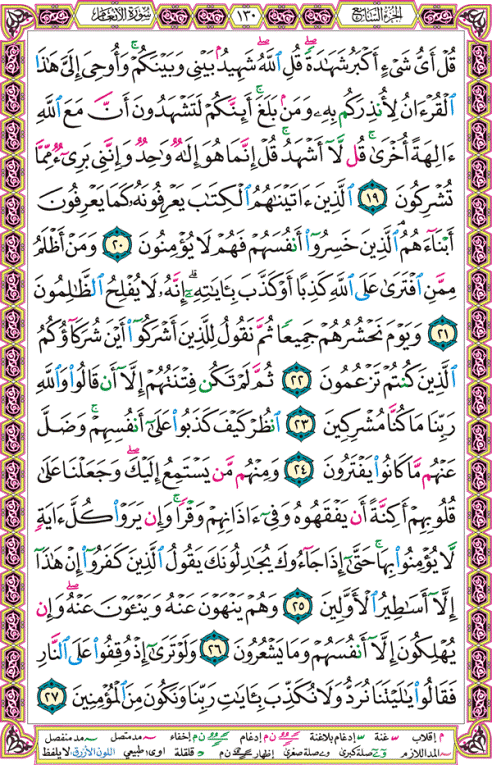 الجزء السابع ١٣٠ سورة الأنعام
قُلْ أَىُّ شَىْءٍ أَكْبَرُ شَهَـٰدَةً ۖ قُلِ ٱللَّهُ ۖ شَهِيدٌۢ بَيْنِى وَبَيْنَكُمْ ۚ وَأُوحِىَ إِلَىَّ هَـٰذَا
ٱلْقُرْءَانُ لِأُنذِرَكُم بِهِۦ وَمَنۢ بَلَغَ ۚ أَئِنَّكُمْ لَتَشْهَدُونَ أَنَّ مَعَ ٱللَّهِ
ءَالِهَةً أُخْرَىٰ ۚ قُل لَّآ أَشْهَدُ ۚ قُلْ إِنَّمَا هُوَ إِلَـٰهٌ وَٰحِدٌ وَإِنَّنِى بَرِىٓءٌ مِّمَّا
تُشْرِكُونَ ١٩ ٱلَّذِينَ ءَاتَيْنَـٰهُمُ ٱلْكِتَـٰبَ يَعْرِفُونَهُۥ كَمَا يَعْرِفُونَ
أَبْنَآءَهُمُ ۘ ٱلَّذِينَ خَسِرُوٓا۟ أَنفُسَهُمْ فَهُمْ لَا يُؤْمِنُونَ ٢٠ وَمَنْ أَظْلَمُ
مِمَّنِ ٱفْتَرَىٰ عَلَى ٱللَّهِ كَذِبًا أَوْ كَذَّبَ بِـَٔايَـٰتِهِۦٓ ۗ إِنَّهُۥ لَا يُفْلِحُ ٱلظَّـٰلِمُونَ
٢١ وَيَوْمَ نَحْشُرُهُمْ جَمِيعًا ثُمَّ نَقُولُ لِلَّذِينَ أَشْرَكُوٓا۟ أَيْنَ شُرَكَآؤُكُمُ
ٱلَّذِينَ كُنتُمْ تَزْعُمُونَ ٢٢ ثُمَّ لَمْ تَكُن فِتْنَتُهُمْ إِلَّآ أَن قَالُوا۟ وَٱللَّهِ
رَبِّنَا مَا كُنَّا مُشْرِكِينَ ٢٣ ٱنظُرْ كَيْفَ كَذَبُوا۟ عَلَىٰٓ أَنفُسِهِمْ ۚ وَضَلَّ
عَنْهُم مَّا كَانُوا۟ يَفْتَرُونَ ٢٤ وَمِنْهُم مَّن يَسْتَمِعُ إِلَيْكَ ۖ وَجَعَلْنَا عَلَىٰ
قُلُوبِهِمْ أَكِنَّةً أَن يَفْقَهُوهُ وَفِىٓ ءَاذَانِهِمْ وَقْرًا ۚ وَإِن يَرَوْا۟ كُلَّ ءَايَةٍ
لَّا يُؤْمِنُوا۟ بِهَا ۚ حَتَّىٰٓ إِذَا جَآءُوكَ يُجَـٰدِلُونَكَ يَقُولُ ٱلَّذِينَ كَفَرُوٓا۟ إِنْ هَـٰذَآ
إِلَّآ أَسَـٰطِيرُ ٱلْأَوَّلِينَ ٢٥ وَهُمْ يَنْهَوْنَ عَنْهُ وَيَنْـَٔوْنَ عَنْهُ ۖ وَإِن
يُهْلِكُونَ إِلَّآ أَنفُسَهُمْ وَمَا يَشْعُرُونَ ٢٦ وَلَوْ تَرَىٰٓ إِذْ وُقِفُوا۟ عَلَى ٱلنَّارِ
فَقَالُوا۟ يَـٰلَيْتَنَا نُرَدُّ وَلَا نُكَذِّبَ بِـَٔايَـٰتِ رَبِّنَا وَنَكُونَ مِنَ ٱلْمُؤْمِنِينَ ٢٧
م إقلاب س غنة إدغام بلاغنة ن م إدغام ن م إخفاء مد متصل مد منفصل
المد اللازم صلة كبرى وصلة صغرى إظهار ن م قلقلة اوى: طبيعي اللون الأزرق: لا يلفظ